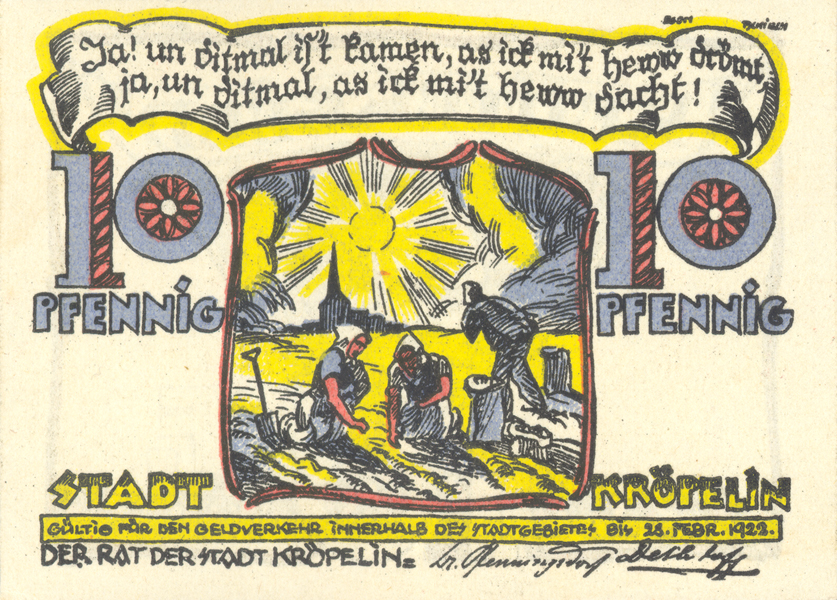 Ja! un ditmal is't kamen, as ick mi't heww drömt,
ja, un ditmal, as ick mi't heww dacht!
10 10
PFENNIG PFENNIG
STADT KRÖPELIN
GÜLTIG FÜR DEN GELDVERKEHR INNERHALB DES STADTGEBIETES BIS 28. FEBR. 1922.
DER RAT DER STADT KRÖPELIN=